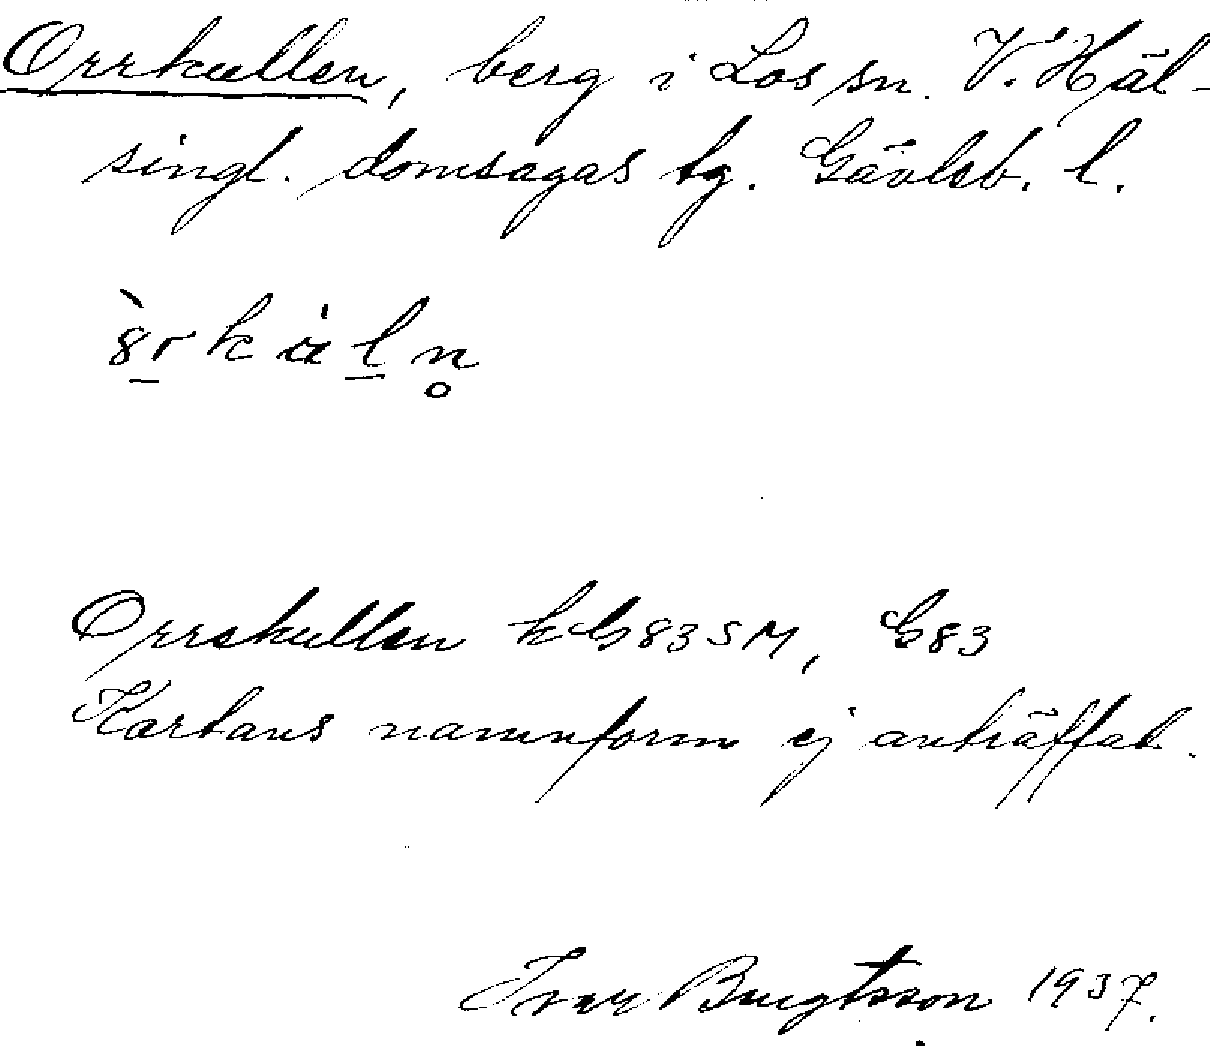 Orrkullen, berg i Los sn. V. Häl-
singl. domsagas tg. Gävleb. l.
Orrekullen kG83SM, G83
Kartans namnform ej anträffat.
Ivar Bengtsson 1937.